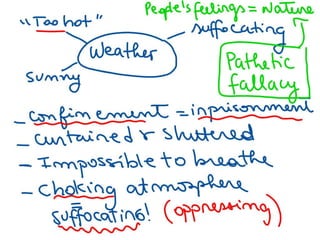 People's feelings = Nature
"Too hot"
suffocating
Weather
sunny
Pathetic
fallacy
- confinement = inprisonment
- curtained & shuttered
- Impossible to breathe
- choking atmosphere
suffocating! (oppressing)